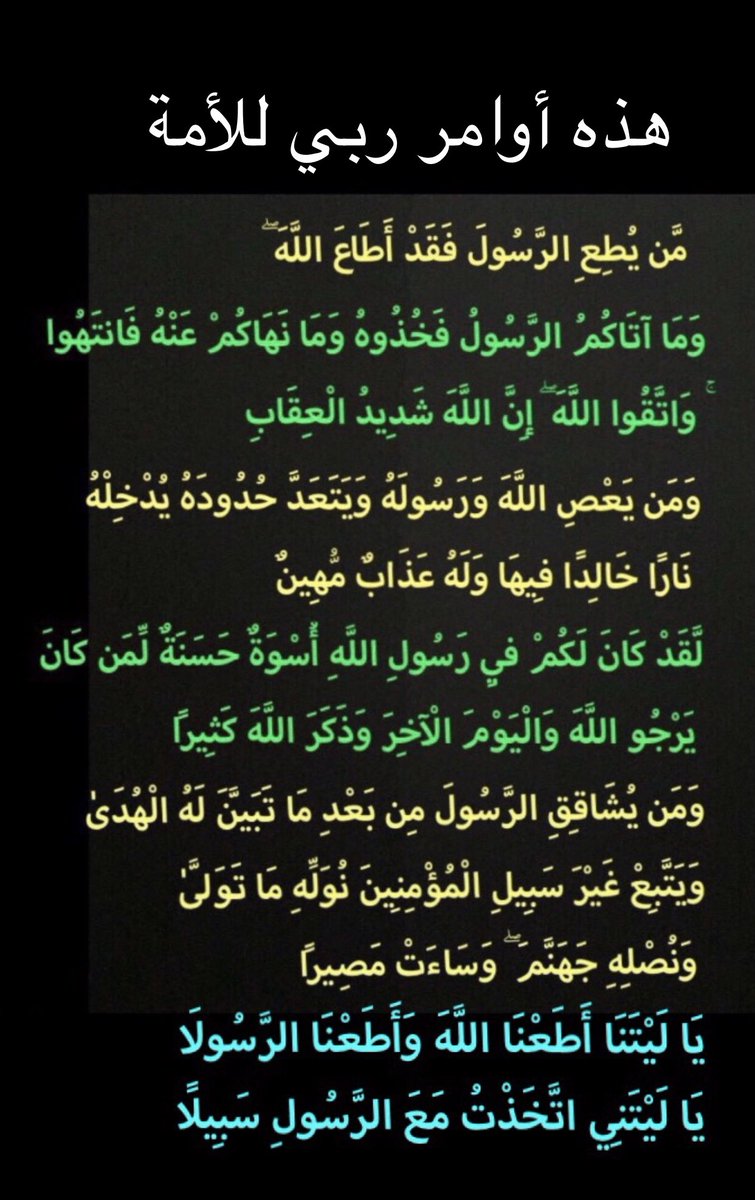 هذه أوامر ربي للأمة
مَّن يُطِعِ الرَّسُولَ فَقَدْ أَطَاعَ اللَّهَ ۖ
وَمَا آتَاكُمُ الرَّسُولُ فَخُذُوهُ وَمَا نَهَاكُمْ عَنْهُ فَانتَهُوا
ۚ وَاتَّقُوا اللَّهَ ۖ إِنَّ اللَّهَ شَدِيدُ الْعِقَابِ
وَمَن يَعْصِ اللَّهَ وَرَسُولَهُ وَيَتَعَدَّ حُدُودَهُ يُدْخِلْهُ
نَارًا خَالِدًا فِيهَا وَلَهُ عَذَابٌ مُّهِينٌ
لَّقَدْ كَانَ لَكُمْ فِي رَسُولِ اللَّهِ أُسْوَةٌ حَسَنَةٌ لِّمَن كَانَ
يَرْجُو اللَّهَ وَالْيَوْمَ الْآخِرَ وَذَكَرَ اللَّهَ كَثِيرًا
وَمَن يُشَاقِقِ الرَّسُولَ مِن بَعْدِ مَا تَبَيَّنَ لَهُ الْهُدَىٰ
وَيَتَّبِعْ غَيْرَ سَبِيلِ الْمُؤْمِنِينَ نُوَلِّهِ مَا تَوَلَّىٰ
وَنُصْلِهِ جَهَنَّمَ ۖ وَسَاءَتْ مَصِيرًا
يَا لَيْتَنَا أَطَعْنَا اللَّهَ وَأَطَعْنَا الرَّسُولَا
يَا لَيْتَنِي اتَّخَذْتُ مَعَ الرَّسُولِ سَبِيلًا